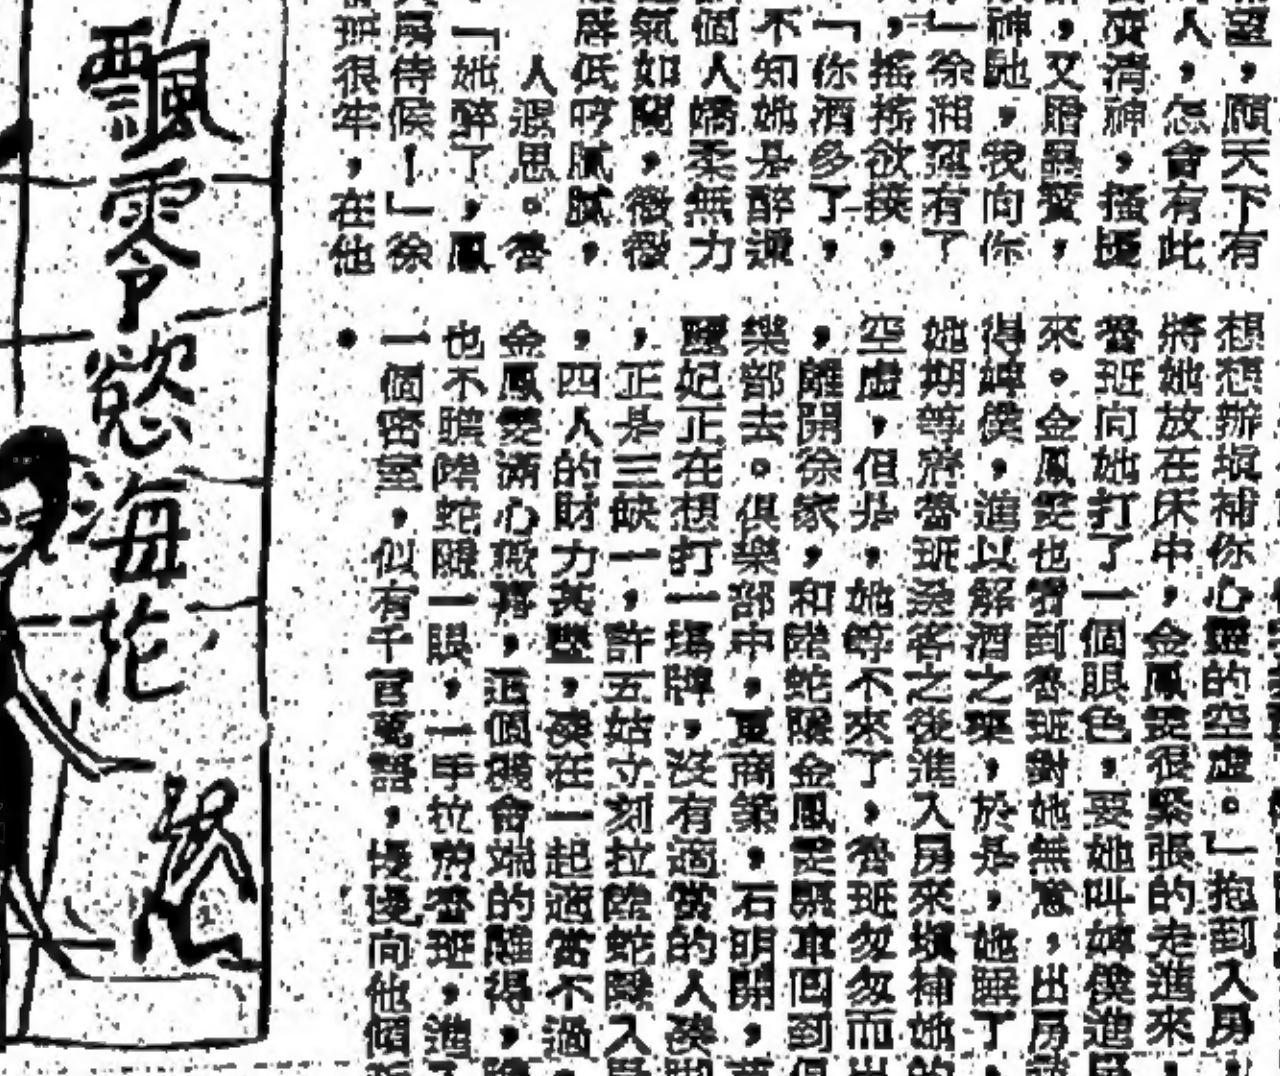 望,願天下有
人,怎會有此
清神,搔
,又贈最愛,
神馳,我向你
」徐湘蓮有了
,搖搖欲撲,
「你酒多了,
不知她是醉還
個人嬌柔無力
氣如蘭,微微
低哼膩膩,
人遐思。魯
「她醉了,鳳
房侍候!」徐
班很牢,在他
想想辦塡補你心靈的空虛。」抱到入房
將她放在床中,金鳳雯很緊張的走進來,
魯班向她打了一個眼色,要她叫婢僕進房
來。金鳳雯也看到魯班對她無意,出房
得婢僕,進以解酒之藥,於是,她睡了,
她期等着魯班送客之後進入房來塡補她的
空虛,但是,她等不來了,魯班匆匆而出
,離開徐家,和陸蛇隊金鳳雯驅車回到俱
樂部去。俱樂部中,夏商築,石明開,
麗妃正在想打一塲牌,沒有適當的人湊脚
,正是三缺一,許五姑立刻拉陸蛇隊入局
,四人的財力,湊在一起適當不過
金鳳雯滿心歡喜,這個機會端的難得,
也不瞻陸蛇隊一眼,一手拉着魯班,進了
一個密室,似有千言萬語,慢慢向他傾
飄零慾海花